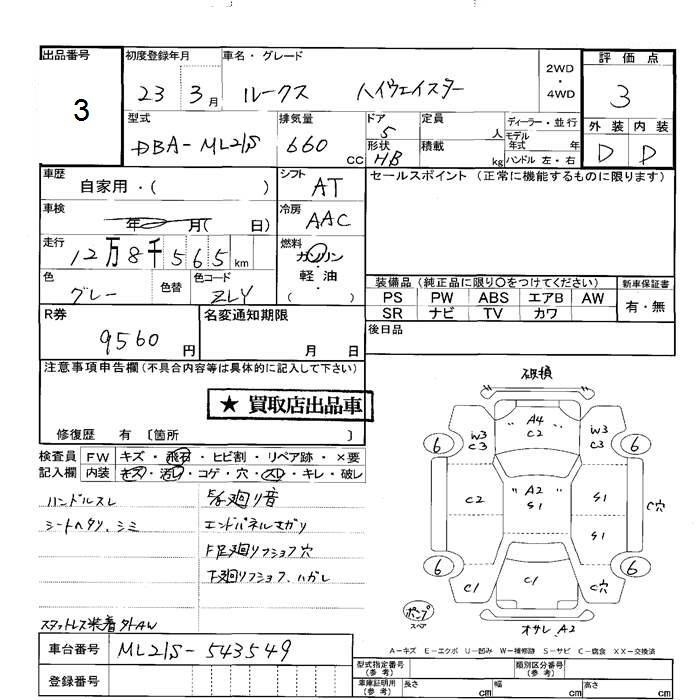 出品番号
3
初度登録年月
23 3月
車名・グレード
ルークス ハイウェイスター
2WD
・
4WD
評価点
3
外装 内装
D D
型式
DBA-ML21S
排気量
660 cc
ドア
5
形状
HB
定員 人
積載 kg
ディーラー・並行
モデル
年式 年
ハンドル 左・右
車歴
自家用・( )
シフト
AT
車検
年 月( 日)
冷房
AAC
走行
12万8千565km
燃料
ガソリン
・
軽・油
( )
色
グレー
色替
色コード
ZLY
R券
9560円
名変通知期限
月 日
セールスポイント (正常に機能するものに限ります)
装備品 (純正品に限り〇をつけてください)
PS PW ABS エアB AW
SR ナビ TV カワ
新車保証書
有・無
後日品
注意事項申告欄(不具合内容等は具体的に記入して下さい)
★ 買取店出品車
修復歴 有 〔箇所 〕
検査員
記入欄
FW キズ・飛石・ヒビ割・リペア跡・×要
内装 キズ・汚レ・コゲ・穴・スレ・キレ・破レ
ハンドルスレ
シートヘタリ、シミ
廻り音
エンドパネルサガリ
F足廻リフショフ穴
下廻リフショフ、ハガレ
スタットレス装着 外AW
車台番号
ML21S-543549
登録番号
破損
A4
C2
W3
C3
W3
C3
6
6
C2
A2
S1
S1
C穴
S1
6
6
C1
C1
C穴
ポンプ
スペア
オサレ A2
A-キズ E-エクボ U-凹み W-補修跡 S-サビ C-腐食 XX-交換済
型式指定番号
(参考)
類別区分番号
(参考)
車庫証明用
(参考)
長さ cm
幅 cm
高さ cm